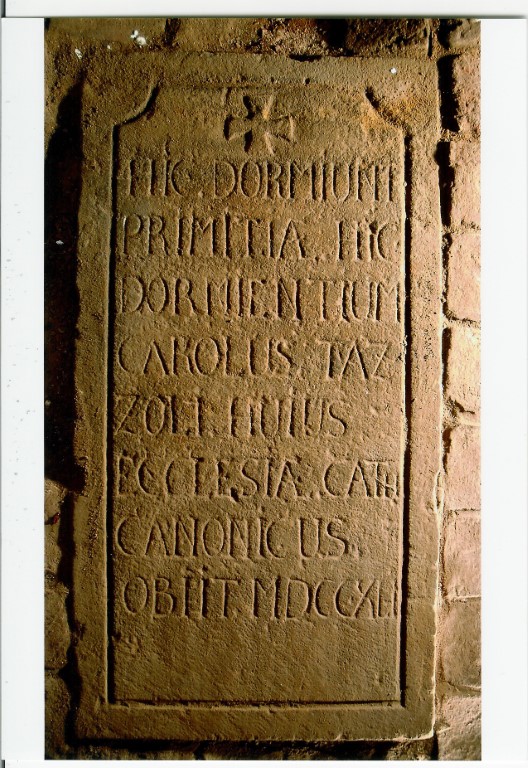 HIC DORMIUNT
PRIMITIÆ HIC
DORMIENTIUM
CAROLUS TAZ
ZOLI HUIUS
ECCLESIÆ CATH
CANONICUS
OBIIT